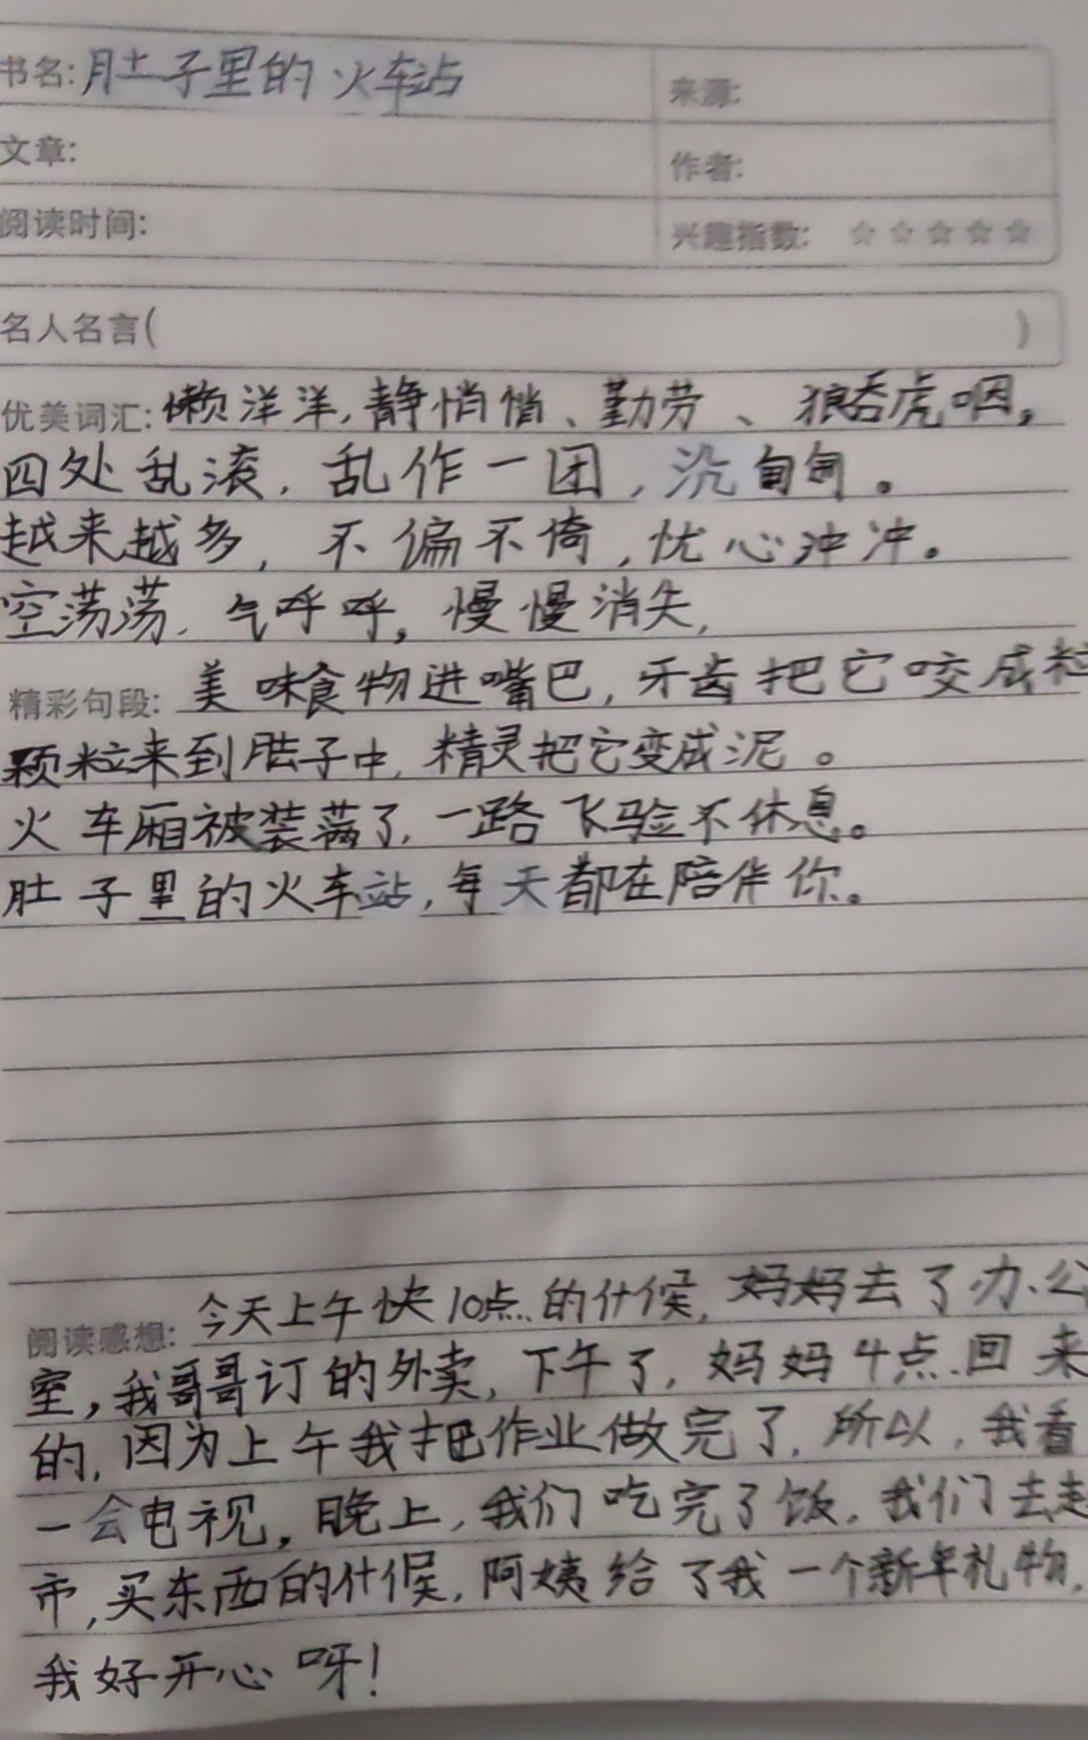 书名: 肚子里的火车站
来源:
文章:
作者:
阅读时间:
兴趣指数: ☆☆☆☆☆
名人名言( )
优美词汇: 懒洋洋,静悄悄、勤劳、狼吞虎咽,
四处乱滚,乱作一团,沉甸甸。
越来越多,不偏不倚,忧心冲冲。
空荡荡,气呼呼,慢慢消失,
精彩句段: 美味食物进嘴巴,牙齿把它咬成粒
颗粒来到肚子中,精灵把它变成泥。
火车厢被装满了,一路飞验不休息。
肚子里的火车站,每天都在陪伴你。
阅读感想: 今天上午快10点的什候,妈妈去了办公
室,我哥哥订的外卖,下午了,妈妈4点回来
的,因为上午我把作业做完了,所以,我看
一会电视,晚上,我们吃完了饭,我们去走
市,买东西的什候,阿姨给了我一个新年礼物,
我好开心呀!